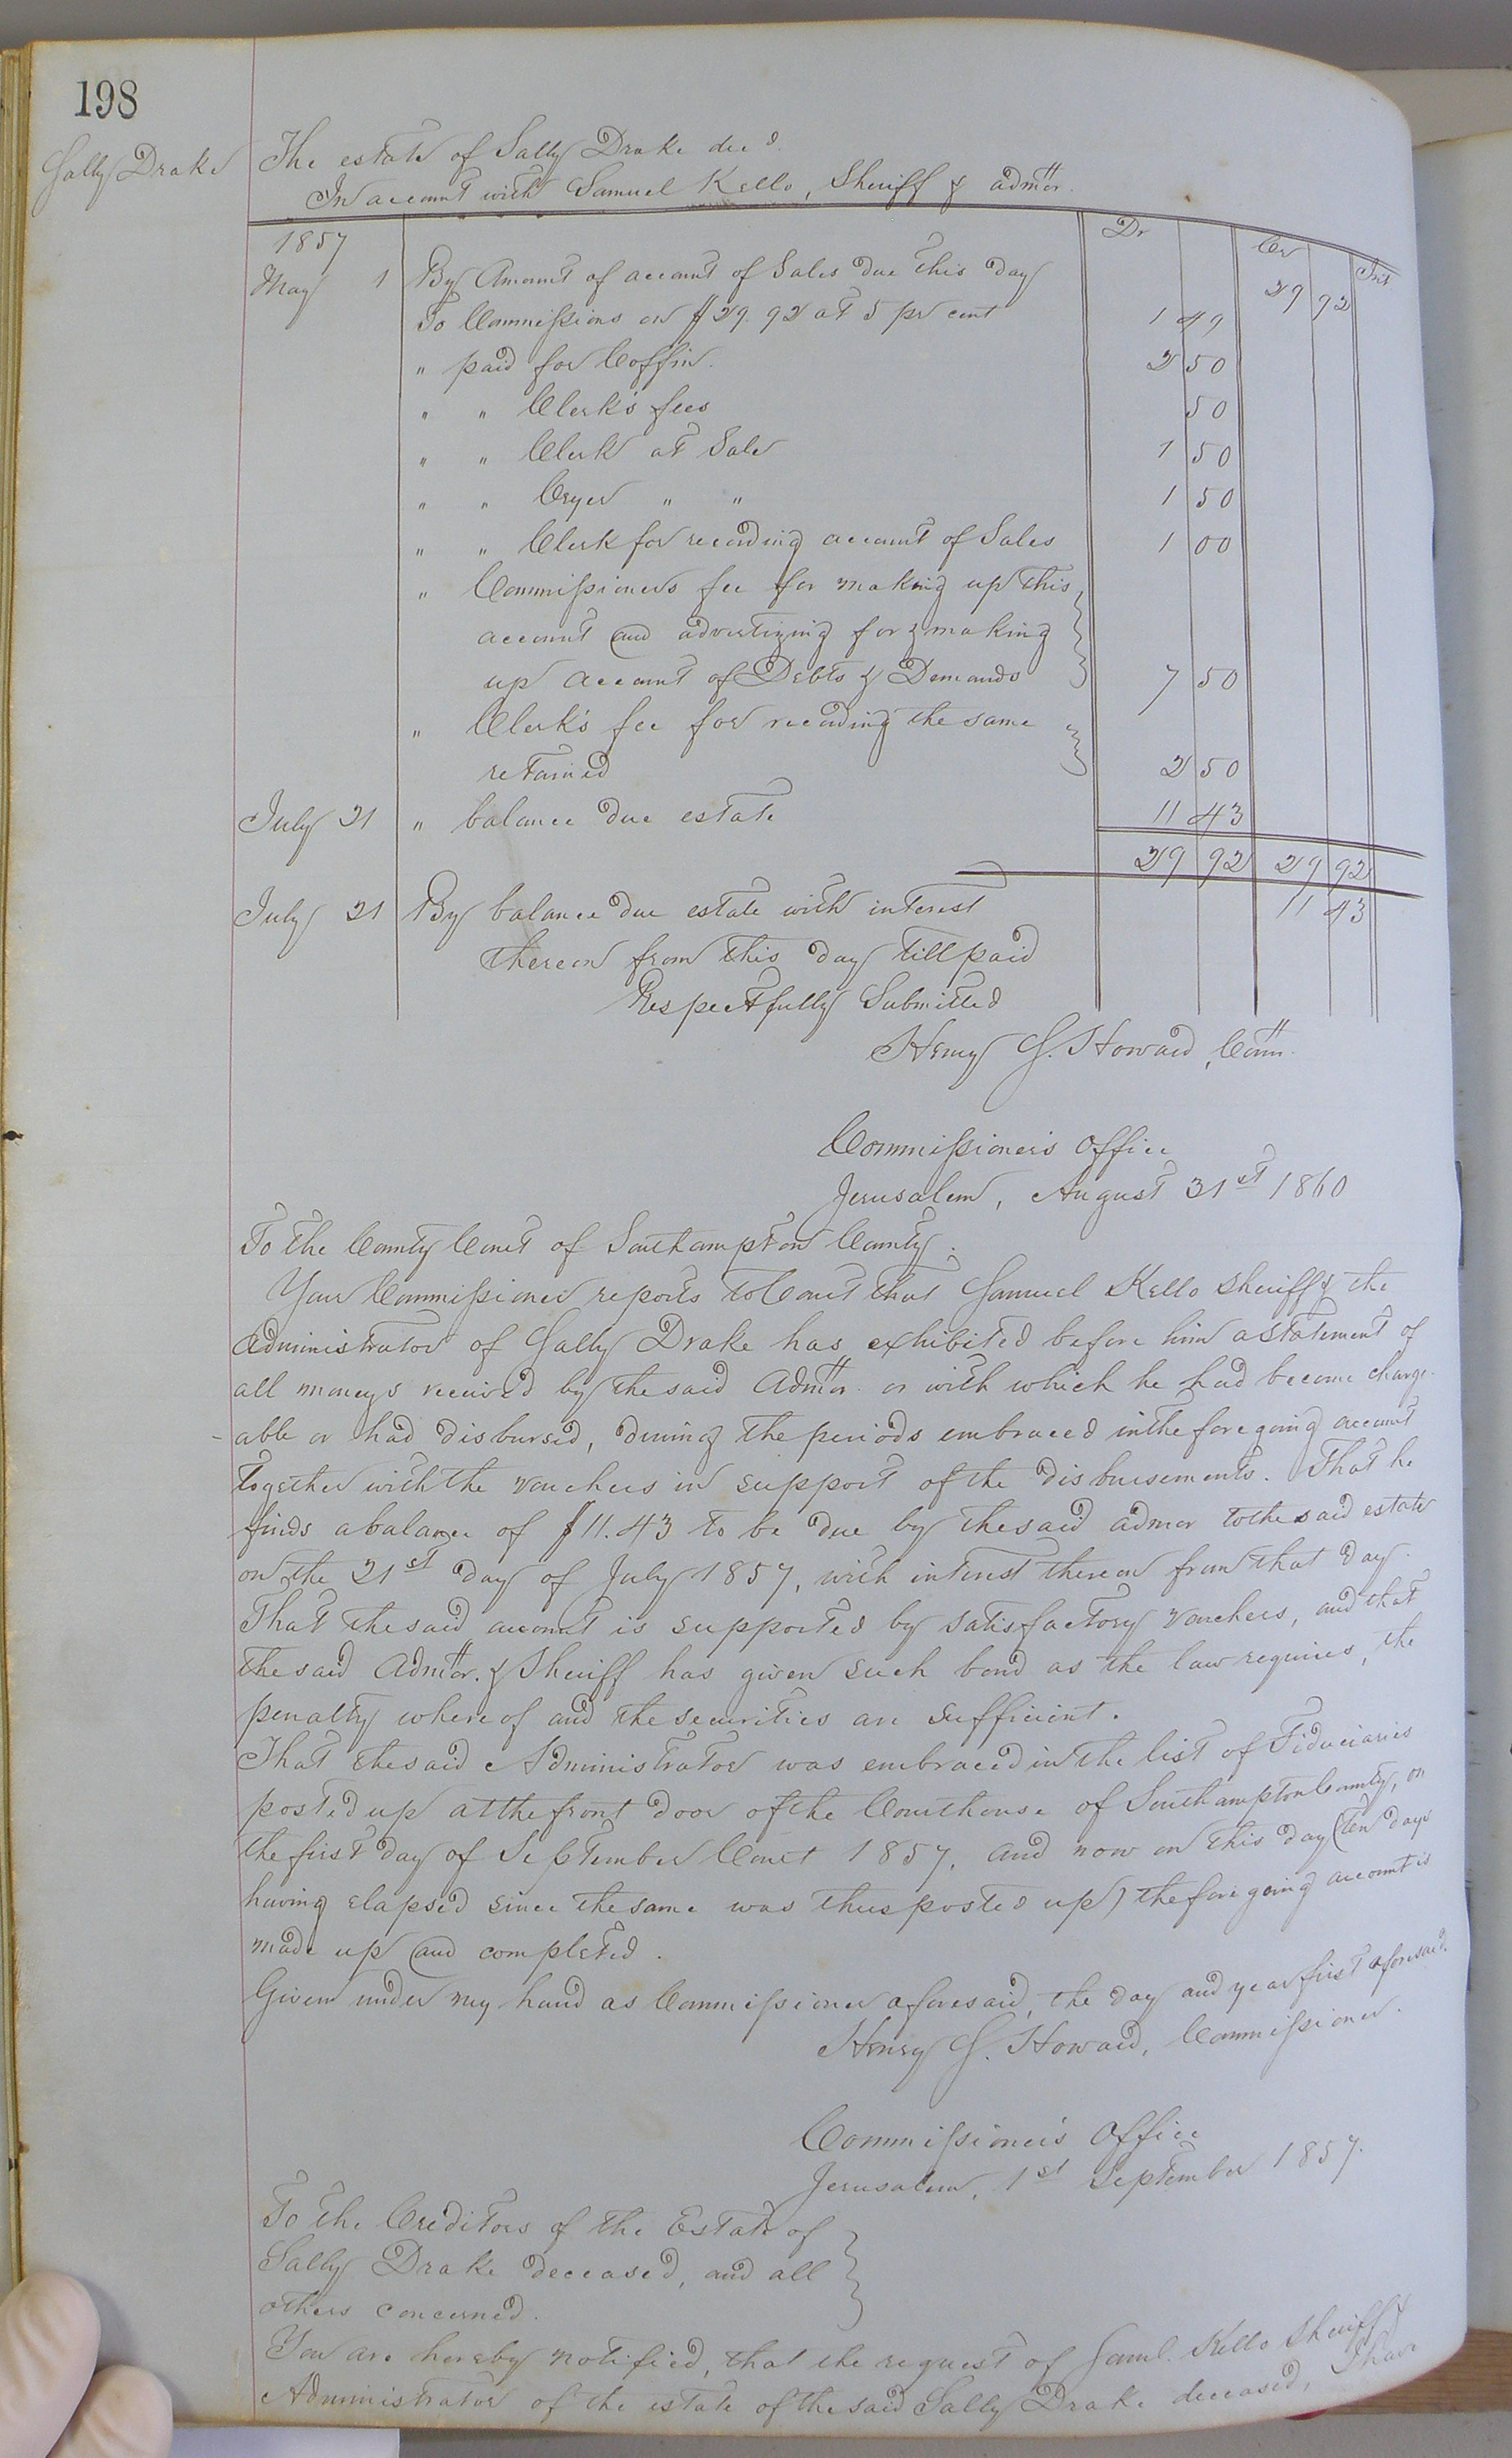 198
Sally Drake
The estate of Sally Drake dec d.
In account with Samuel Kello, Sheriff & admor.
Dr Cr Int
1857
May 1 By Amount of account of Sales due this day 29 92
To Commissions on $29.92 at 5 pr cent 1 49
" paid for Coffin. 2 50
" " Clerk's fees 50
" " Clerk at Sale 1 50
" " Cryer " " 1 50
" " Clerk for recording account of Sales 1 00
" Commissioners fee for making up this
account and advertizing for & making
up account of Debts & Demands 7 50
" Clerk's fee for recording the same
retained 2 50
July 21 " balance due estate 11 43
29 92 29 92
July 21 By balance due estate with interest 11 43
thereon from this day till paid
Respectfully Submitted
Henry G. Howard, Comr.
Commissioner's Office
Jerusalem, August 31st 1860
To the County Court of Southampton County.
Your Commissioner reports to Court that Samuel Kello Sheriff & the
Administrator of Sally Drake has exhibited before him a statement of
all moneys received by the said Admor. or with which he had become charge-
able or had disbursed, during the periods embraced in the foregoing account
together with the vouchers in support of the disbursements. That he
finds a balance of $11.43 to be due by the said admor to the said estate
on the 21st day of July 1857, with interest thereon from that day.
That the said account is supported by satisfactory vouchers, and that
the said Admor. & Sheriff has given such bond as the law requires, the
penalty whereof and the securities are sufficient.
That the said Administrator was embraced in the list of Fiduciaries
posted up at the front door of the Courthouse of Southampton County, on
the first day of September Court 1857, and now on this day (ten days
having elapsed since the same was thus posted up) the foregoing account is
made up and completed.
Given under my hand as Commissioner aforesaid, the day and year first aforesaid.
Henry G. Howard, Commissioner.
Commissioner's Office
Jerusalem, 1st September 1857.
To the Creditors of the Estate of
Sally Drake deceased, and all
others concerned.
You are hereby notified, that the request of Saml. Kello Sheriff &
Administrator of the estate of the said Sally Drake deceased, I have